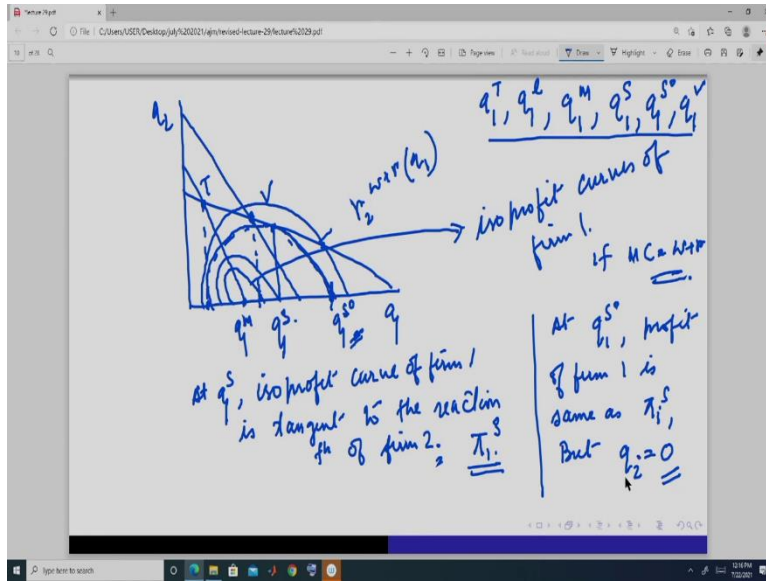 lecture 29.pdf
File | C:/Users/USER/Desktop/july%202021/ajm/revised-lecture-29/lecture%2029.pdf
of 25
Page view
Read aloud
Draw
Highlight
Erase
q₁ᵀ, q₁ˡ, q₁ᴹ, q₁ˢ, q₁ˢ⁰, q₁ⱽ
q₂
T
V
r₂ʷ⁺ʳ(q₁)
isoprofit curves of
firm 1.
if MC = w+r
q₁ᴹ
q₁ˢ.
q₁ˢ⁰
q₁
At q₁ˢ, isoprofit curve of firm 1
is tangent to the reaction
fn of firm 2. π₁ˢ.
At q₁ˢ⁰, profit
of firm 1 is
same as π₁ˢ,
But q₂=0
Type here to search
12:16 PM
7/22/2021